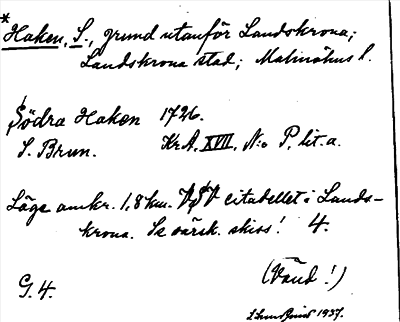 *Haken, S., grund utanför Landskrona;
Landskrona stad; Malmöhus l.
Södra Haken 1726.
S. Brun. Kr.A. XVII, N:o P, lit. a.
Läge omkr. 1,8 km. VSV citadellet i Lands-
krona. Se särsk. skiss! 4.
(Vänd!)
G. 4.
1937.